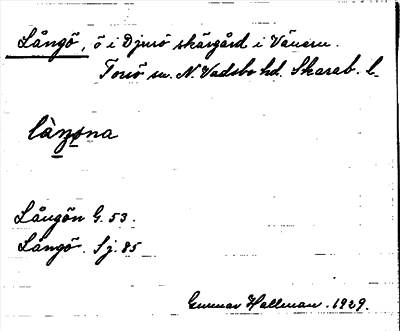 Långö, ö i Djurö skärgård i Vänern.
Torsö sn. N. Vadsbo hd. Skarab. l.
làŋo̱na
Långön G. 53.
Långö. Sj. 85
Gunnar Hallman. 1929.